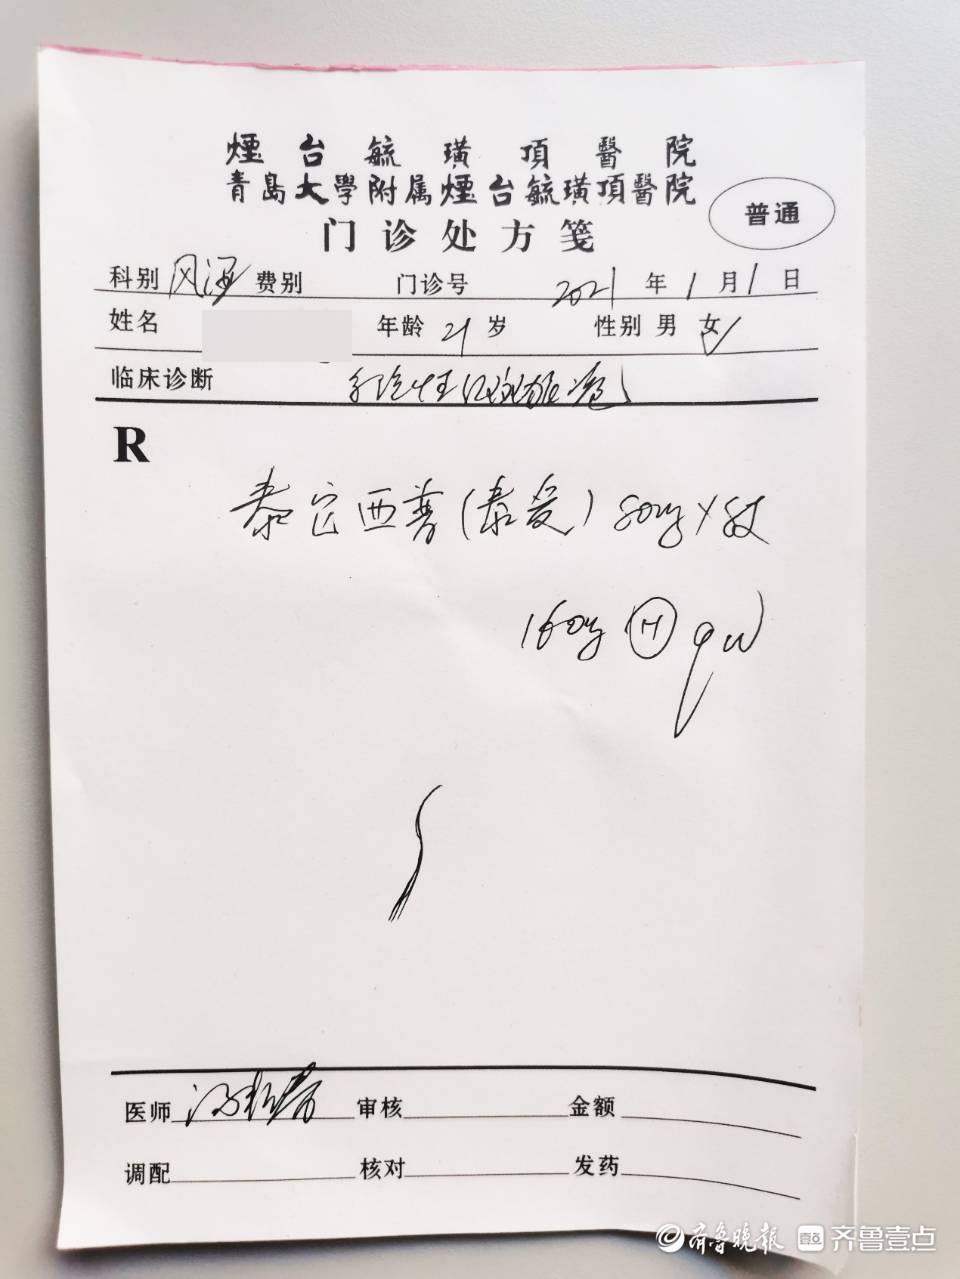 煙台毓璜頂醫院
青島大學附属煙台毓璜頂醫院
门诊处方笺
普通
科别 风湿 费别 门诊号 2021 年 1 月 1 日
姓名 年龄 21 岁 性别 男 女✓
临床诊断 系统性红斑狼疮
R
泰它西普(泰爱) 80mg×8支
160mg Ⓗ qw
医师 审核 金额
调配 核对 发药
齐鲁晚报 壹点 齐鲁壹点